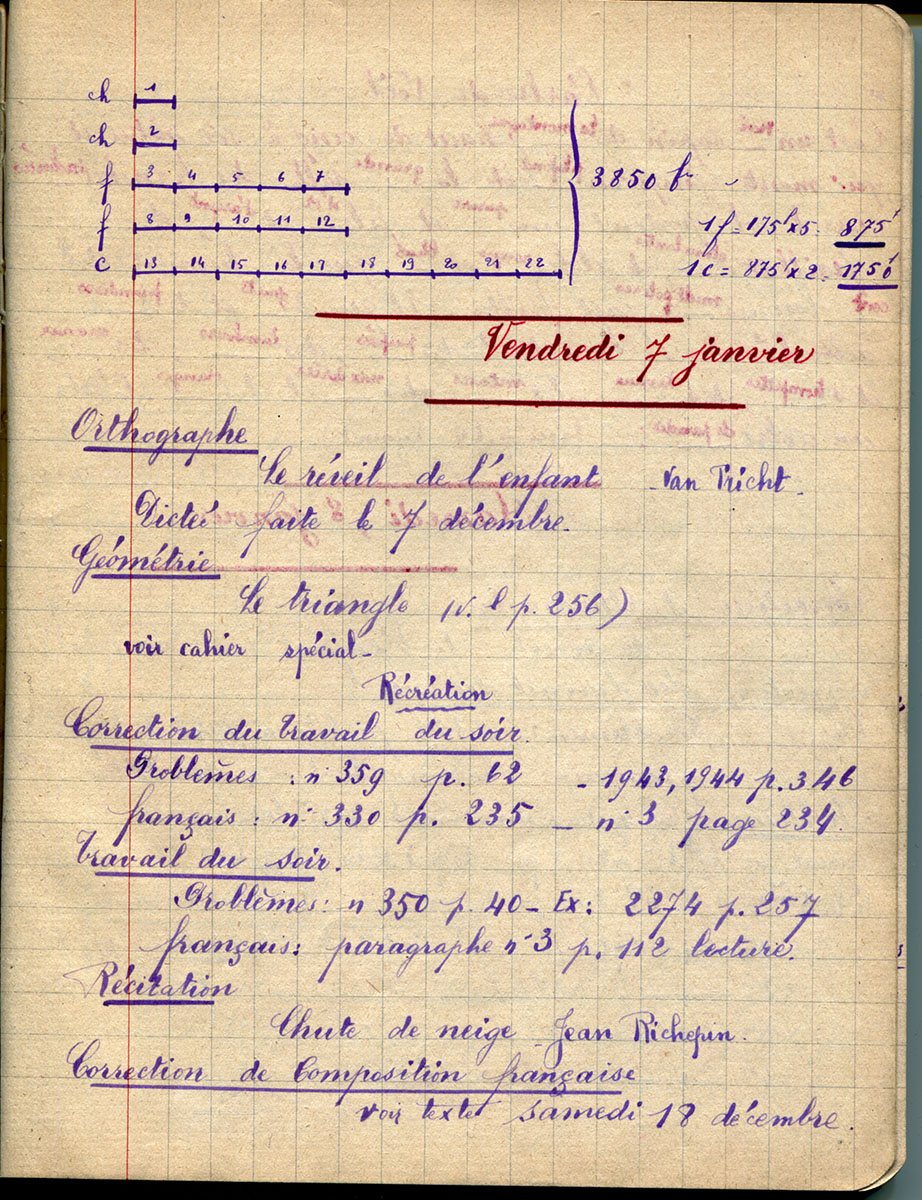 ch 1
ch 2
f 3 4 5 6 7
f 8 9 10 11 12
c 13 14 15 16 17 18 19 20 21 22
3850 f
1 f = 175f x 5 875f
1 c = 875f x 2 1750f
Vendredi 7 janvier
Orthographe
Le réveil de l'enfant - Van Tricht.
Dicteé faite le 7 décembre.
Géométrie
Le triangle (v. l p. 256)
voir cahier spécial -
Récréation
Correction du travail du soir.
Problèmes : n° 359 p. 62 - 1943, 1944 p. 346
français : n° 330 p. 235 - n° 3 page 234.
Travail du soir.
Problèmes : n 350 p. 40 - Ex : 2274 p. 257
français : paragraphe n° 3 p. 112 lecture.
Récitation
Chute de neige - Jean Richepin.
Correction de Composition française
voir texte samedi 18 décembre.